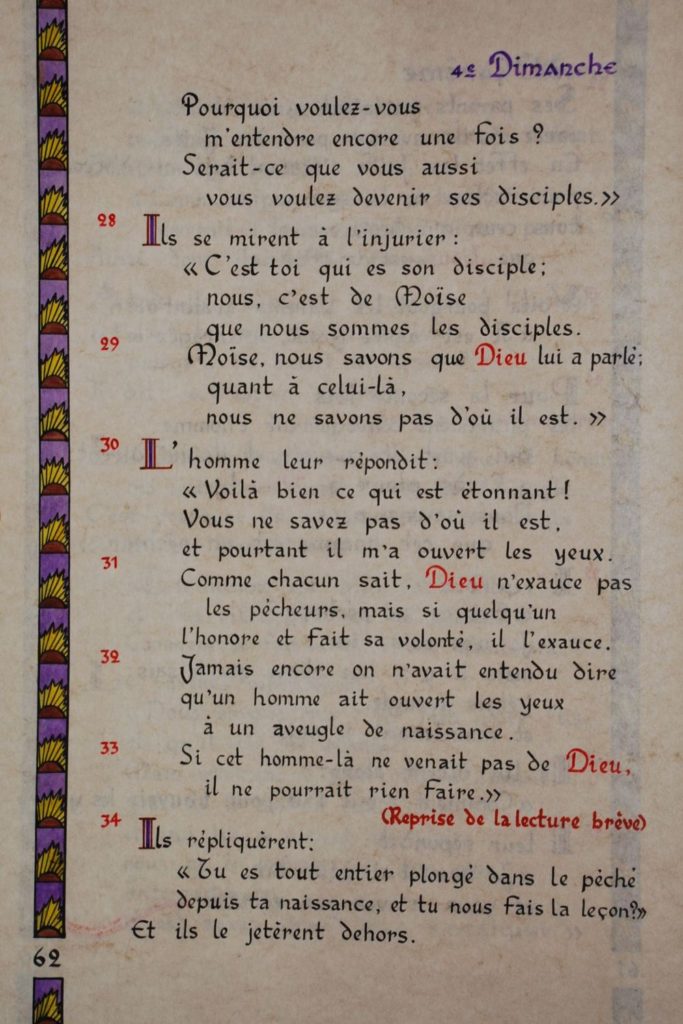 4e Dimanche
Pourquoi voulez-vous
m'entendre encore une fois ?
Serait-ce que vous aussi
vous voulez devenir ses disciples.»
28 Ils se mirent à l'injurier :
« C'est toi qui es son disciple ;
nous, c'est de Moïse
que nous sommes les disciples.
29 Moïse, nous savons que Dieu lui a parlé ;
quant à celui-là,
nous ne savons pas d'où il est. »
30 L'homme leur répondit :
« Voilà bien ce qui est étonnant !
Vous ne savez pas d'où il est,
et pourtant il m'a ouvert les yeux.
31 Comme chacun sait, Dieu n'exauce pas
les pécheurs, mais si quelqu'un
l'honore et fait sa volonté, il l'exauce.
32 Jamais encore on n'avait entendu dire
qu'un homme ait ouvert les yeux
à un aveugle de naissance.
33 Si cet homme-là ne venait pas de Dieu,
il ne pourrait rien faire.»
(Reprise de la lecture brève)
34 Ils répliquèrent :
« Tu es tout entier plongé dans le péché
depuis ta naissance, et tu nous fais la leçon?»
Et ils le jetèrent dehors.
62